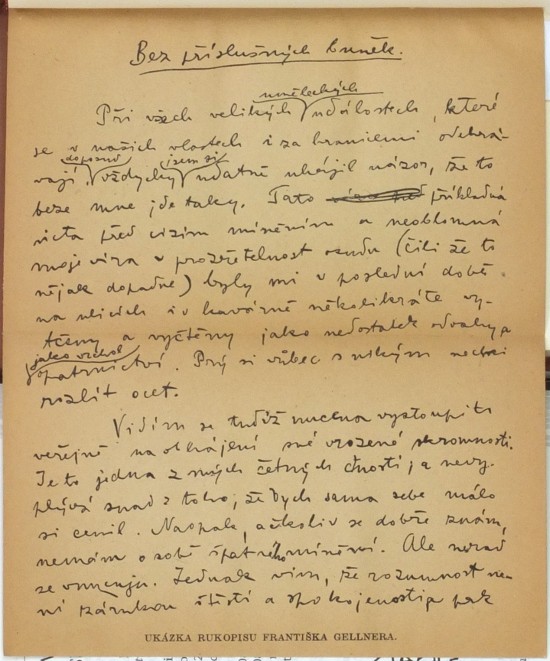 Bez příslušných buněk.
uměleckých
Při všech velikých událostech, které
se v našich vlastech i za hranicemi odehrá-
doposud jsem si
vají, vždycky udatně uhájil názor, že to
beze mne jde taky. Tato příkladná
úcta před cizím míněním a neoblomná
moje víra v prozřetelnost osudu (čili že to
nějak dopadne) byly mi v poslední době
na ulicích i v kavárně několikráte vy-
tčeny a vyčteny jako nedostatek odvahy a
jako vrchol
opatrnictví. Prý si vůbec s nikým nechci
rozlít ocet.
Vidím se tudíž nucena vystoupiti
veřejně na obhájení své vrozené skromnosti.
Je to jedna z mých četných ctností a nevy-
plývá snad z toho, že bych sama sebe málo
si cenil. Naopak, ačkoliv se dobře znám,
nemám o sobě špatného mínění. Ale nerad
se vnucuju. Jednak vím, že rozumnost ne-
ní zárukou štěstí a spokojenosti a pak
UKÁZKA RUKOPISU FRANTIŠKA GELLNERA.